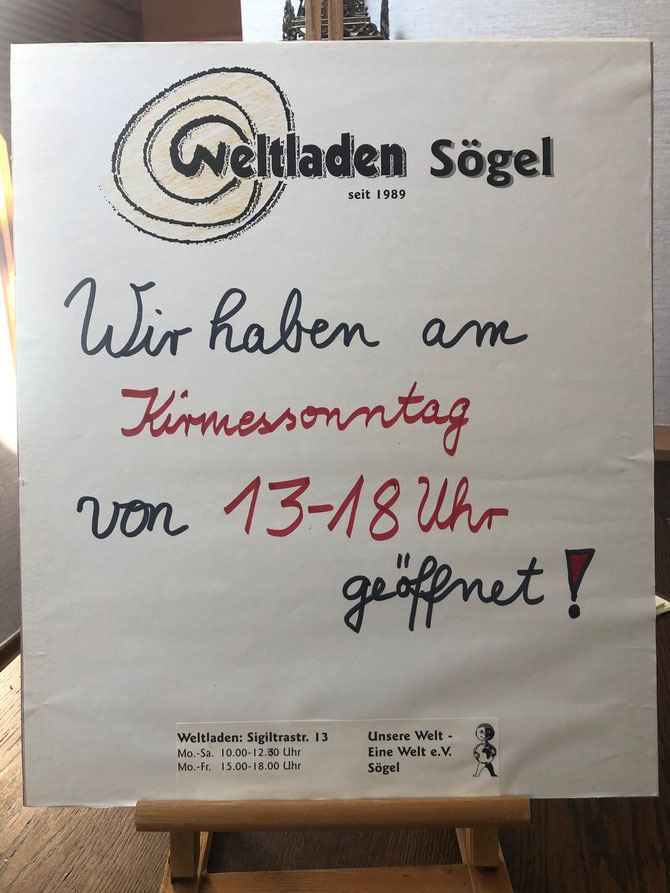 Weltladen Sögel
seit 1989
Wir haben am
Kirmessonntag
von 13-18 Uhr
geöffnet!
Weltladen: Sigiltrastr. 13
Mo.-Sa. 10.00-12.30 Uhr
Mo.-Fr. 15.00-18.00 Uhr
Unsere Welt -
Eine Welt e.V.
Sögel